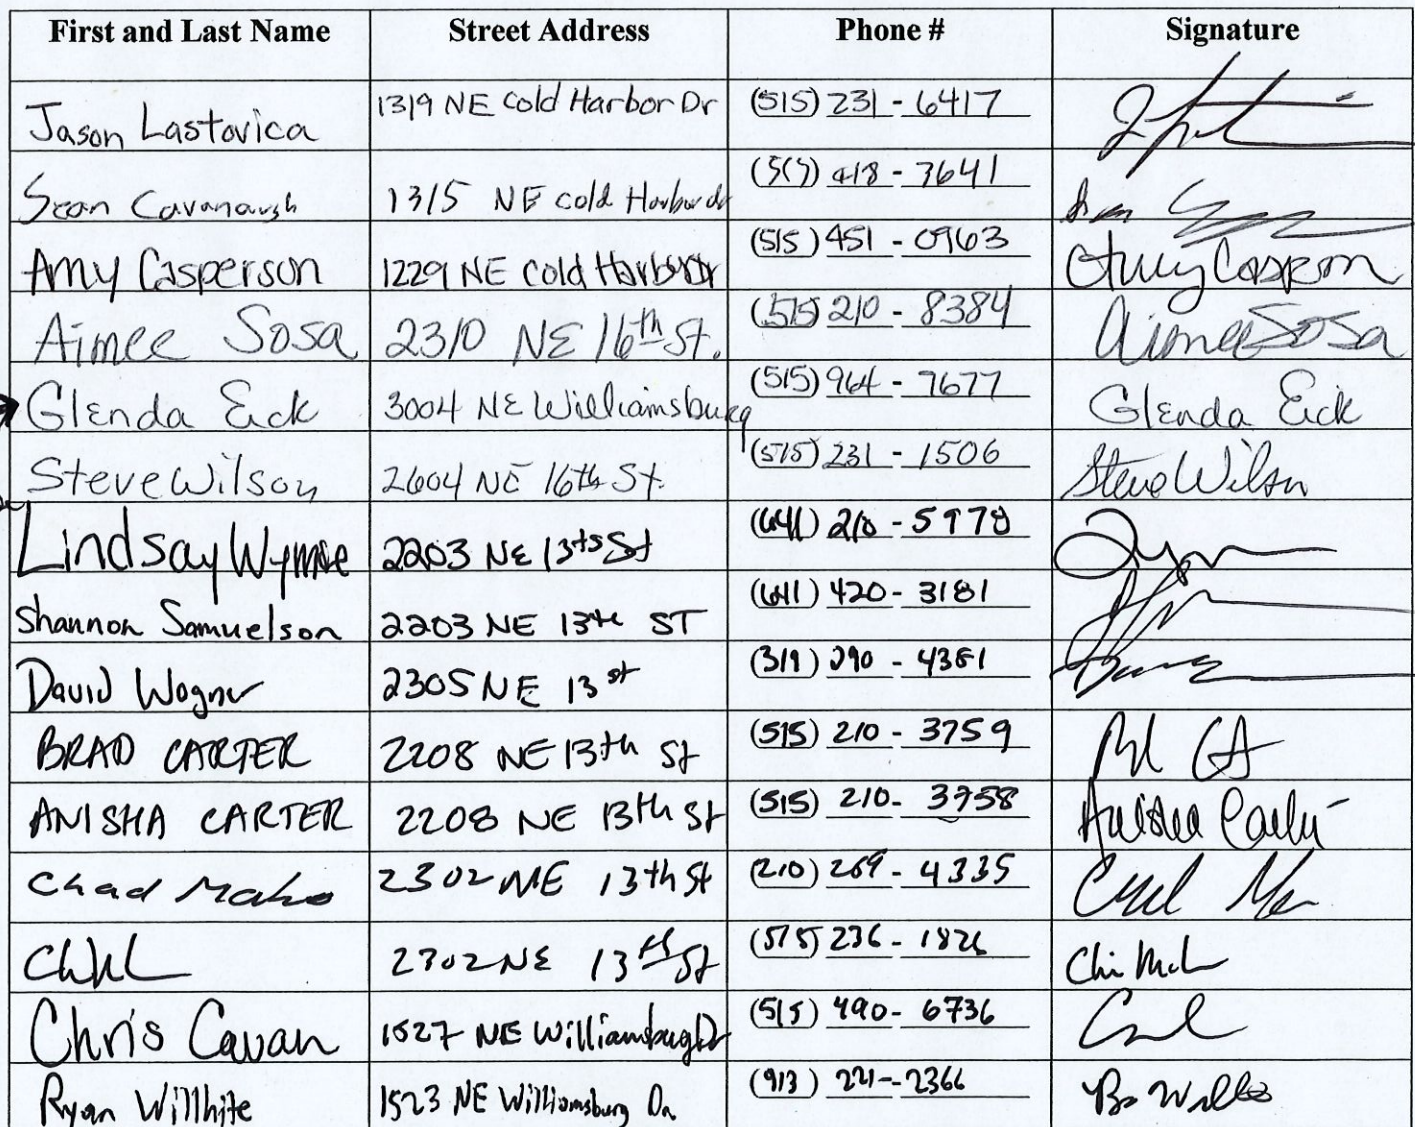 First and Last Name Street Address Phone # Signature
Jason Lastovica 1319 NE Cold Harbor Dr (515) 231 - 6417
Sean Cavanaugh 1315 NE cold Harbor dr (515) 418 - 3641
Amy Casperson 1229 NE Cold Harbor Dr (515) 451 - 0963 Amy Casperson
Aimee Sosa 2310 NE 16th St. (515) 210 - 8384 Aimee Sosa
Glenda Eick 3004 NE Williamsburg (515) 964 - 7677 Glenda Eick
Steve Wilson 2604 NE 16th St. (515) 231 - 1506 Steve Wilson
Lindsay 2203 NE 13th St (641) 210 - 5978
Shannon Samuelson 2203 NE 13th ST (641) 420 - 3181
David Wagner 2305 NE 13 st (319) - 4381
BRAD CARTER 2208 NE 13th St (515) 210 - 3759
ANISHA CARTER 2208 NE 13th St (515) 210 - 3758 Anisha Carter
Chad 2302 NE 13th St (210) 269 - 4335
2302 NE 13th St (515) 236 - 1826
Chris Cavan 1527 NE Williamsburg Dr (515) 490 - 6736
Ryan Willhite 1523 NE Williamsburg Dr (913) 221 - 2366